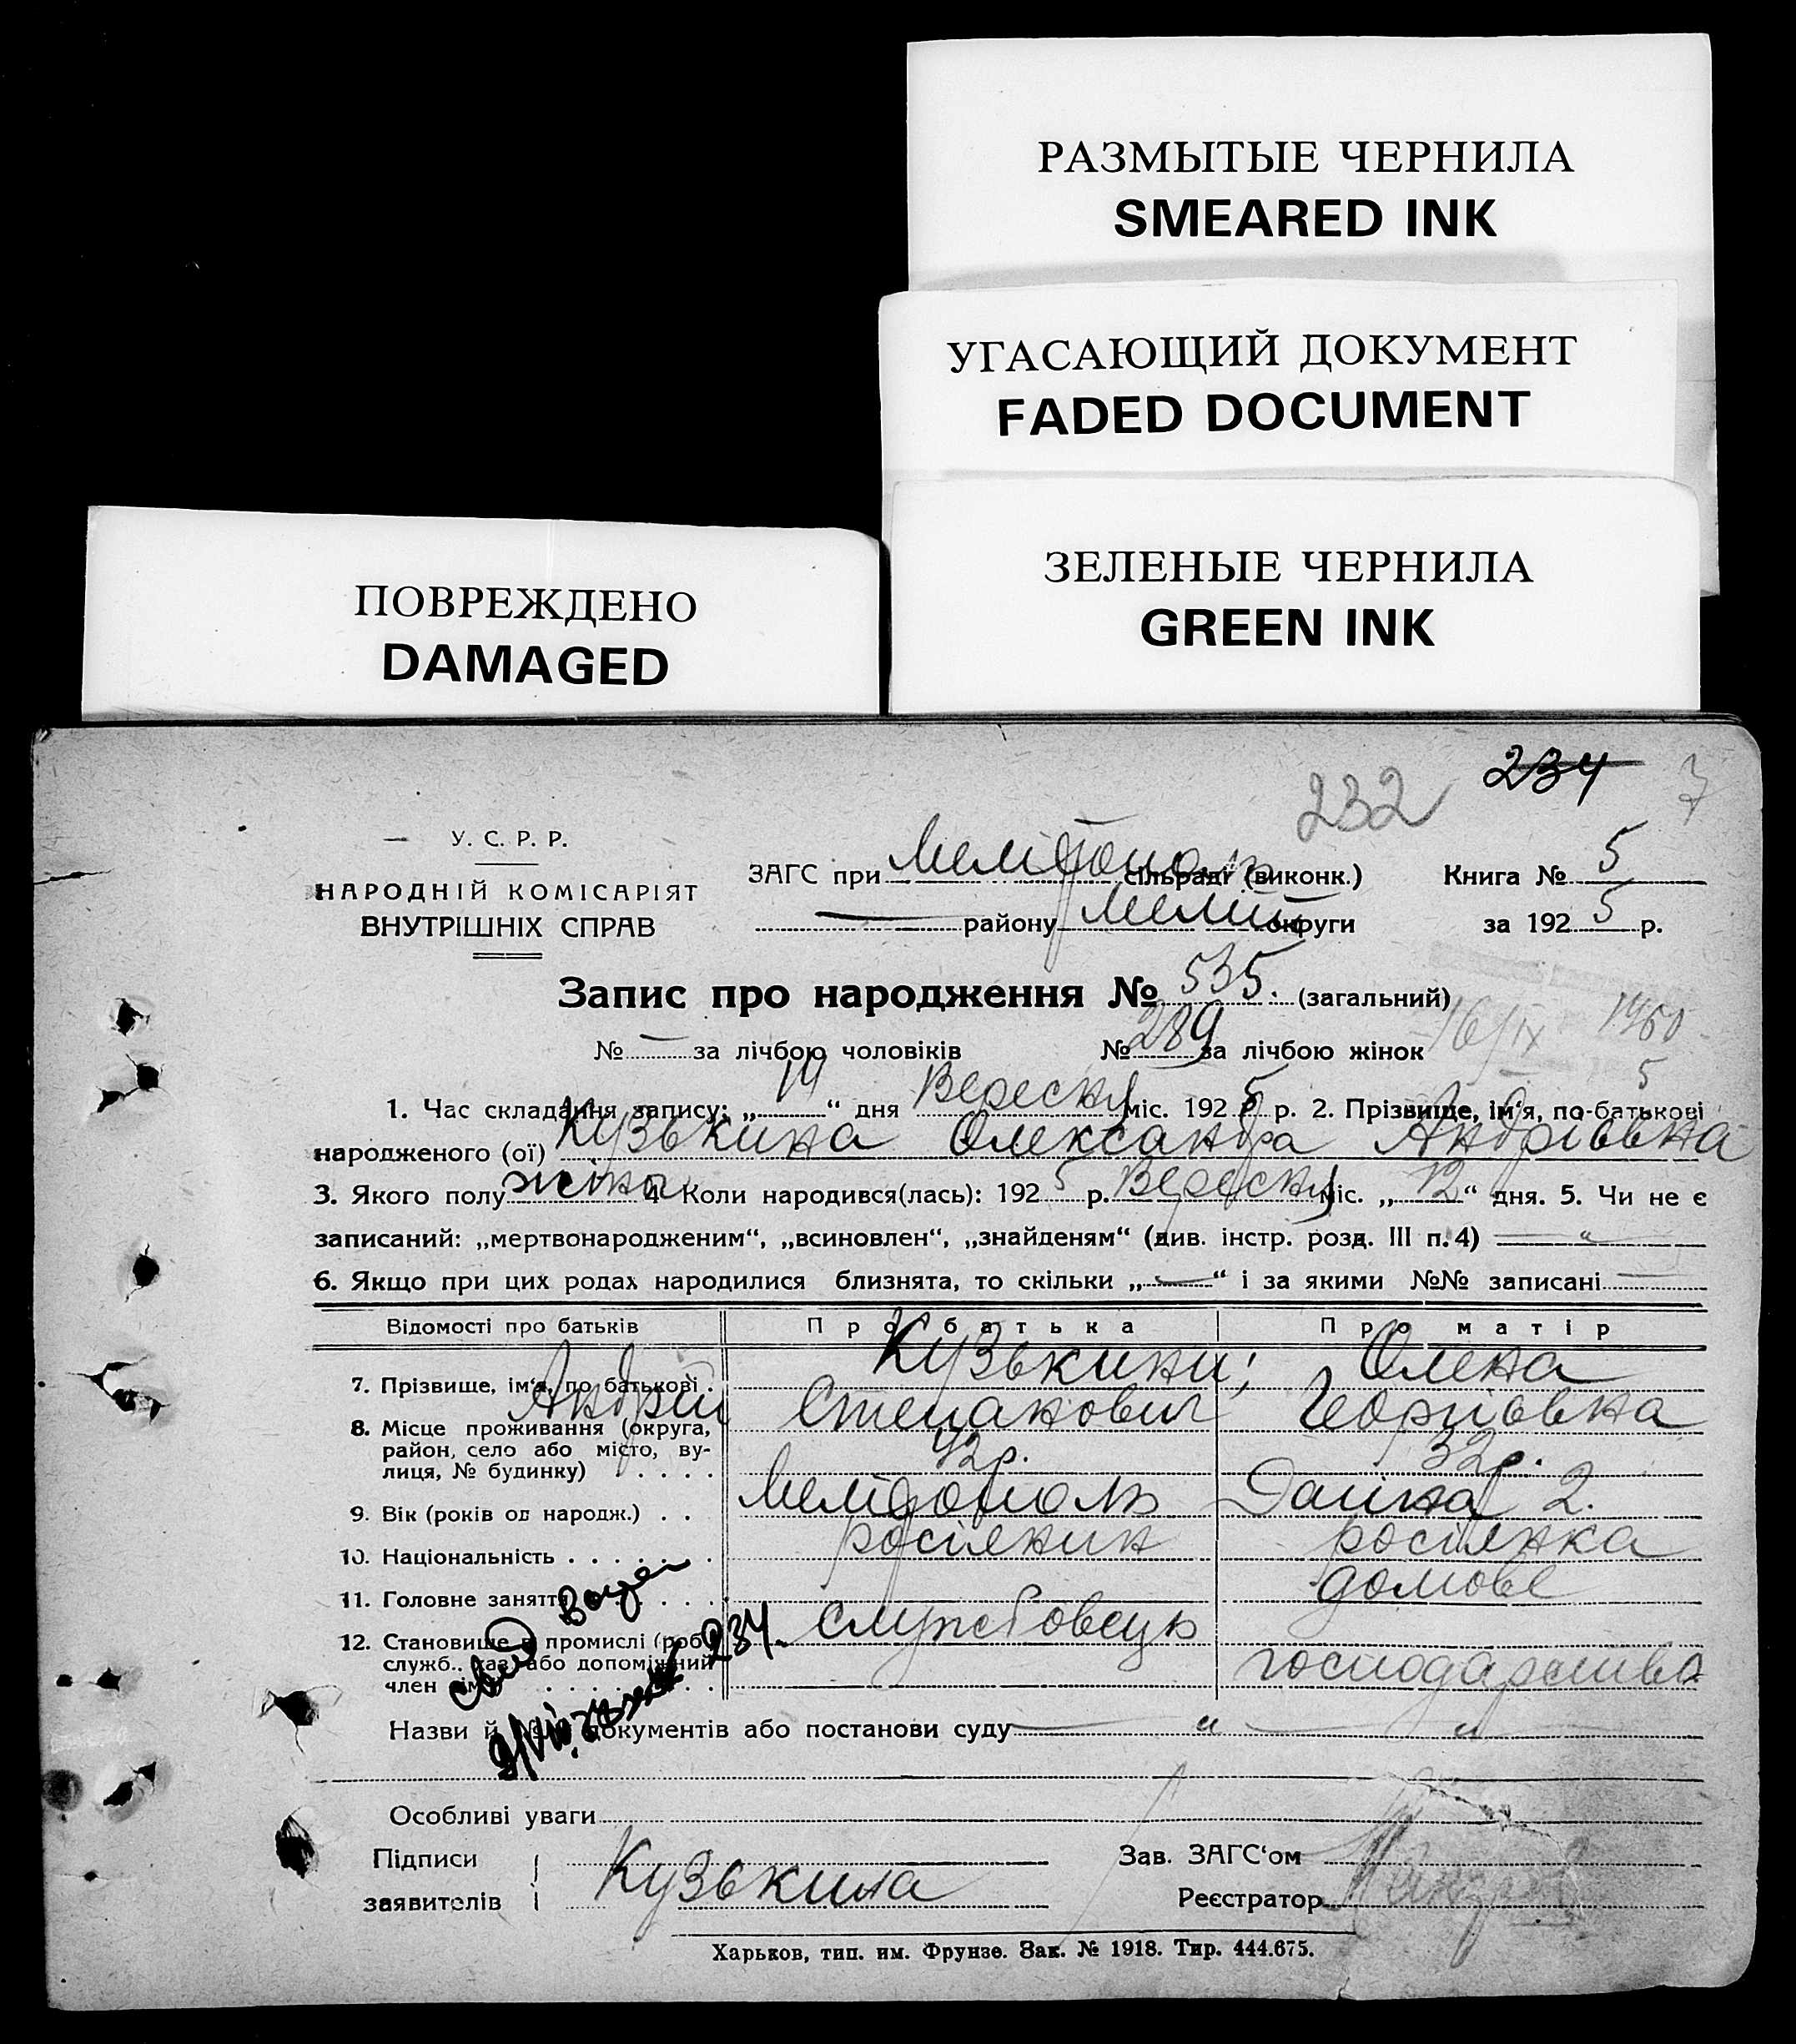 РАЗМЫТЫЕ ЧЕРНИЛА
SMEARED INK
УГАСАЮЩИЙ ДОКУМЕНТ
FADED DOCUMENT
ПОВРЕЖДЕНО
DAMAGED
ЗЕЛЕНЫЕ ЧЕРНИЛА
GREEN INK
232 234 7
У. С. Р. Р.
НАРОДНІЙ КОМІСАРІЯТ
ВНУТРІШНІХ СПРАВ
ЗАГС при Мелітополь сільраді (виконк.) Книга № 5
— району Меліт округи за 1925 р.
Запис про народження № 535. (загальний)
№ — за лічбою чоловіків № 289 за лічбою жінок
16/IX 1960
1. Час складання запису: „14“ дня Вересня міс. 1925 р. 2. Прізвище, ім'я, по-батькові
народженого (ої) Кузькина Олександра Андріївна
3. Якого полу жіно 4 Коли народився(лась): 1925 р. Вересня міс. „12“ дня. 5. Чи не є
записаний: „мертвонародженим“, „всиновлен“, „знайденям“ (див. інстр. розд. III п. 4) — „ —
6. Якщо при цих родах народилися близнята, то скільки „—“ і за якими №№ записані —
Відомості про батьків Про батька Про матір
7. Прізвище, ім'я, по батькові. Кузькини; Олена
Андрій Степанович Георгіовна
8. Місце проживання (округа, район, село або місто, вулиця, № будинку) 42р. 32р.
9. Вік (років од народж.) . . Мелітополь Данина 2.
10. Національність . . . . . . . росіянин росіянка
11. Головне заняття . . . . . . . домове
12. Становище в промислі (роб. служб., або допоміжний член службовець господарства
234.
Назви й документів або постанови суду — „ — „ —
Особливі уваги
Підписи Зав. ЗАГС'ом
заявителів Кузькина Реєстратор
Харьков, тип. им. Фрунзе. Зак. № 1918. Тир. 444.675.